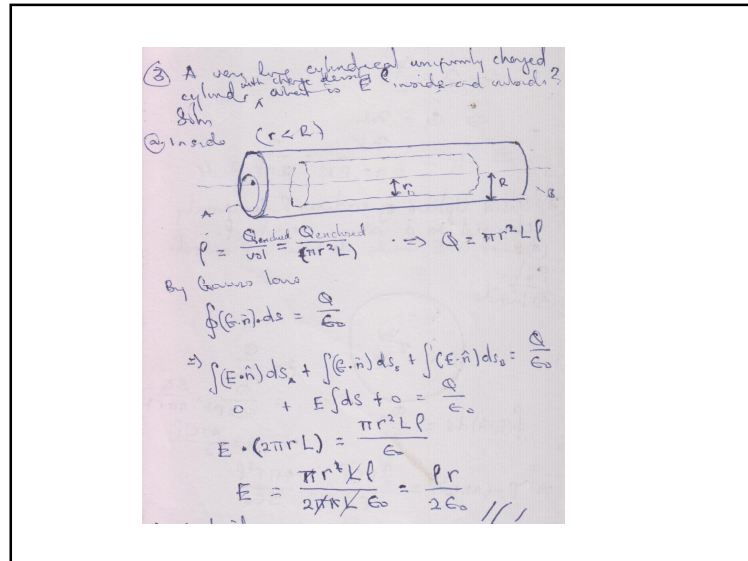 ③ A very long cylindrical uniformly charged
cylinder with charge density ρ, what is E inside and outside?
Soln
ⓐ Inside (r < R)
r R
A B
ρ = Qenclosed/vol = Qenclosed/(πr²L) ⇒ Q = πr²Lρ
By Gauss law
∮(E·n̂)·ds = Q/ε₀
⇒ ∫(E·n̂)ds_A + ∫(E·n̂)ds_s + ∫(E·n̂)ds_B = Q/ε₀
0 + E∫ds + 0 = Q/ε₀
E·(2πrL) = πr²Lρ/ε₀
E = πr²Lρ/2πrLε₀ = ρr/2ε₀